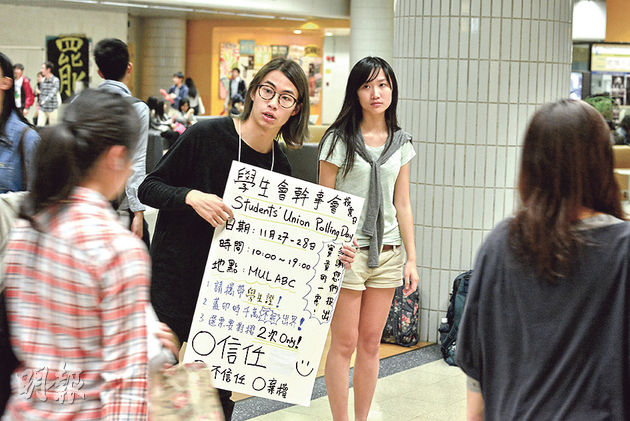 罷
學生會幹事會投票日
Students' Union Polling Day
日期：11月27-28日
時間：10:00～19:00
地點：MUL ABC
1. 請攜帶學生證！
2. 蓋印時千萬
出界！
3. 選票要對摺2次Only!
○信任
不信任 ○棄權
明報